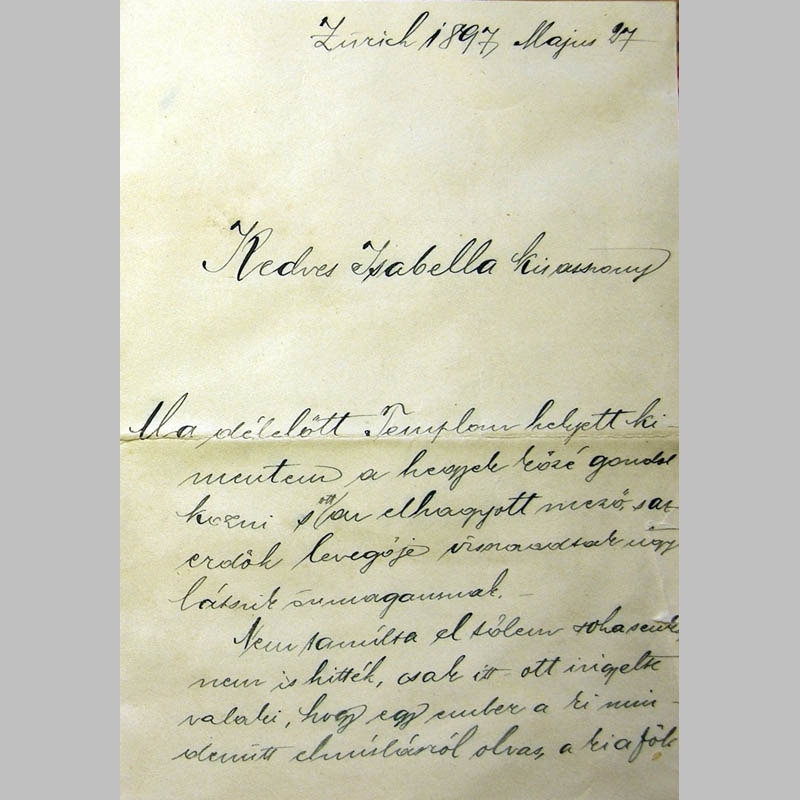 Zürich 1897 Majus 27
Kedves Izabella kisasszony
Ma délelőtt Templom helyett ki-
mentem a hegyek közé gondol
kozni s ott az elhagyott mező, s az
erdők levegője visszaadtak úgy
látszik önmagamnak. –
Nem tanulta el tőlem sohasenki
nem is hitték, csak itt-ott irigyelte
valaki, hogy egy ember a ki min-
denütt elmúlásról olvas, a ki a föld